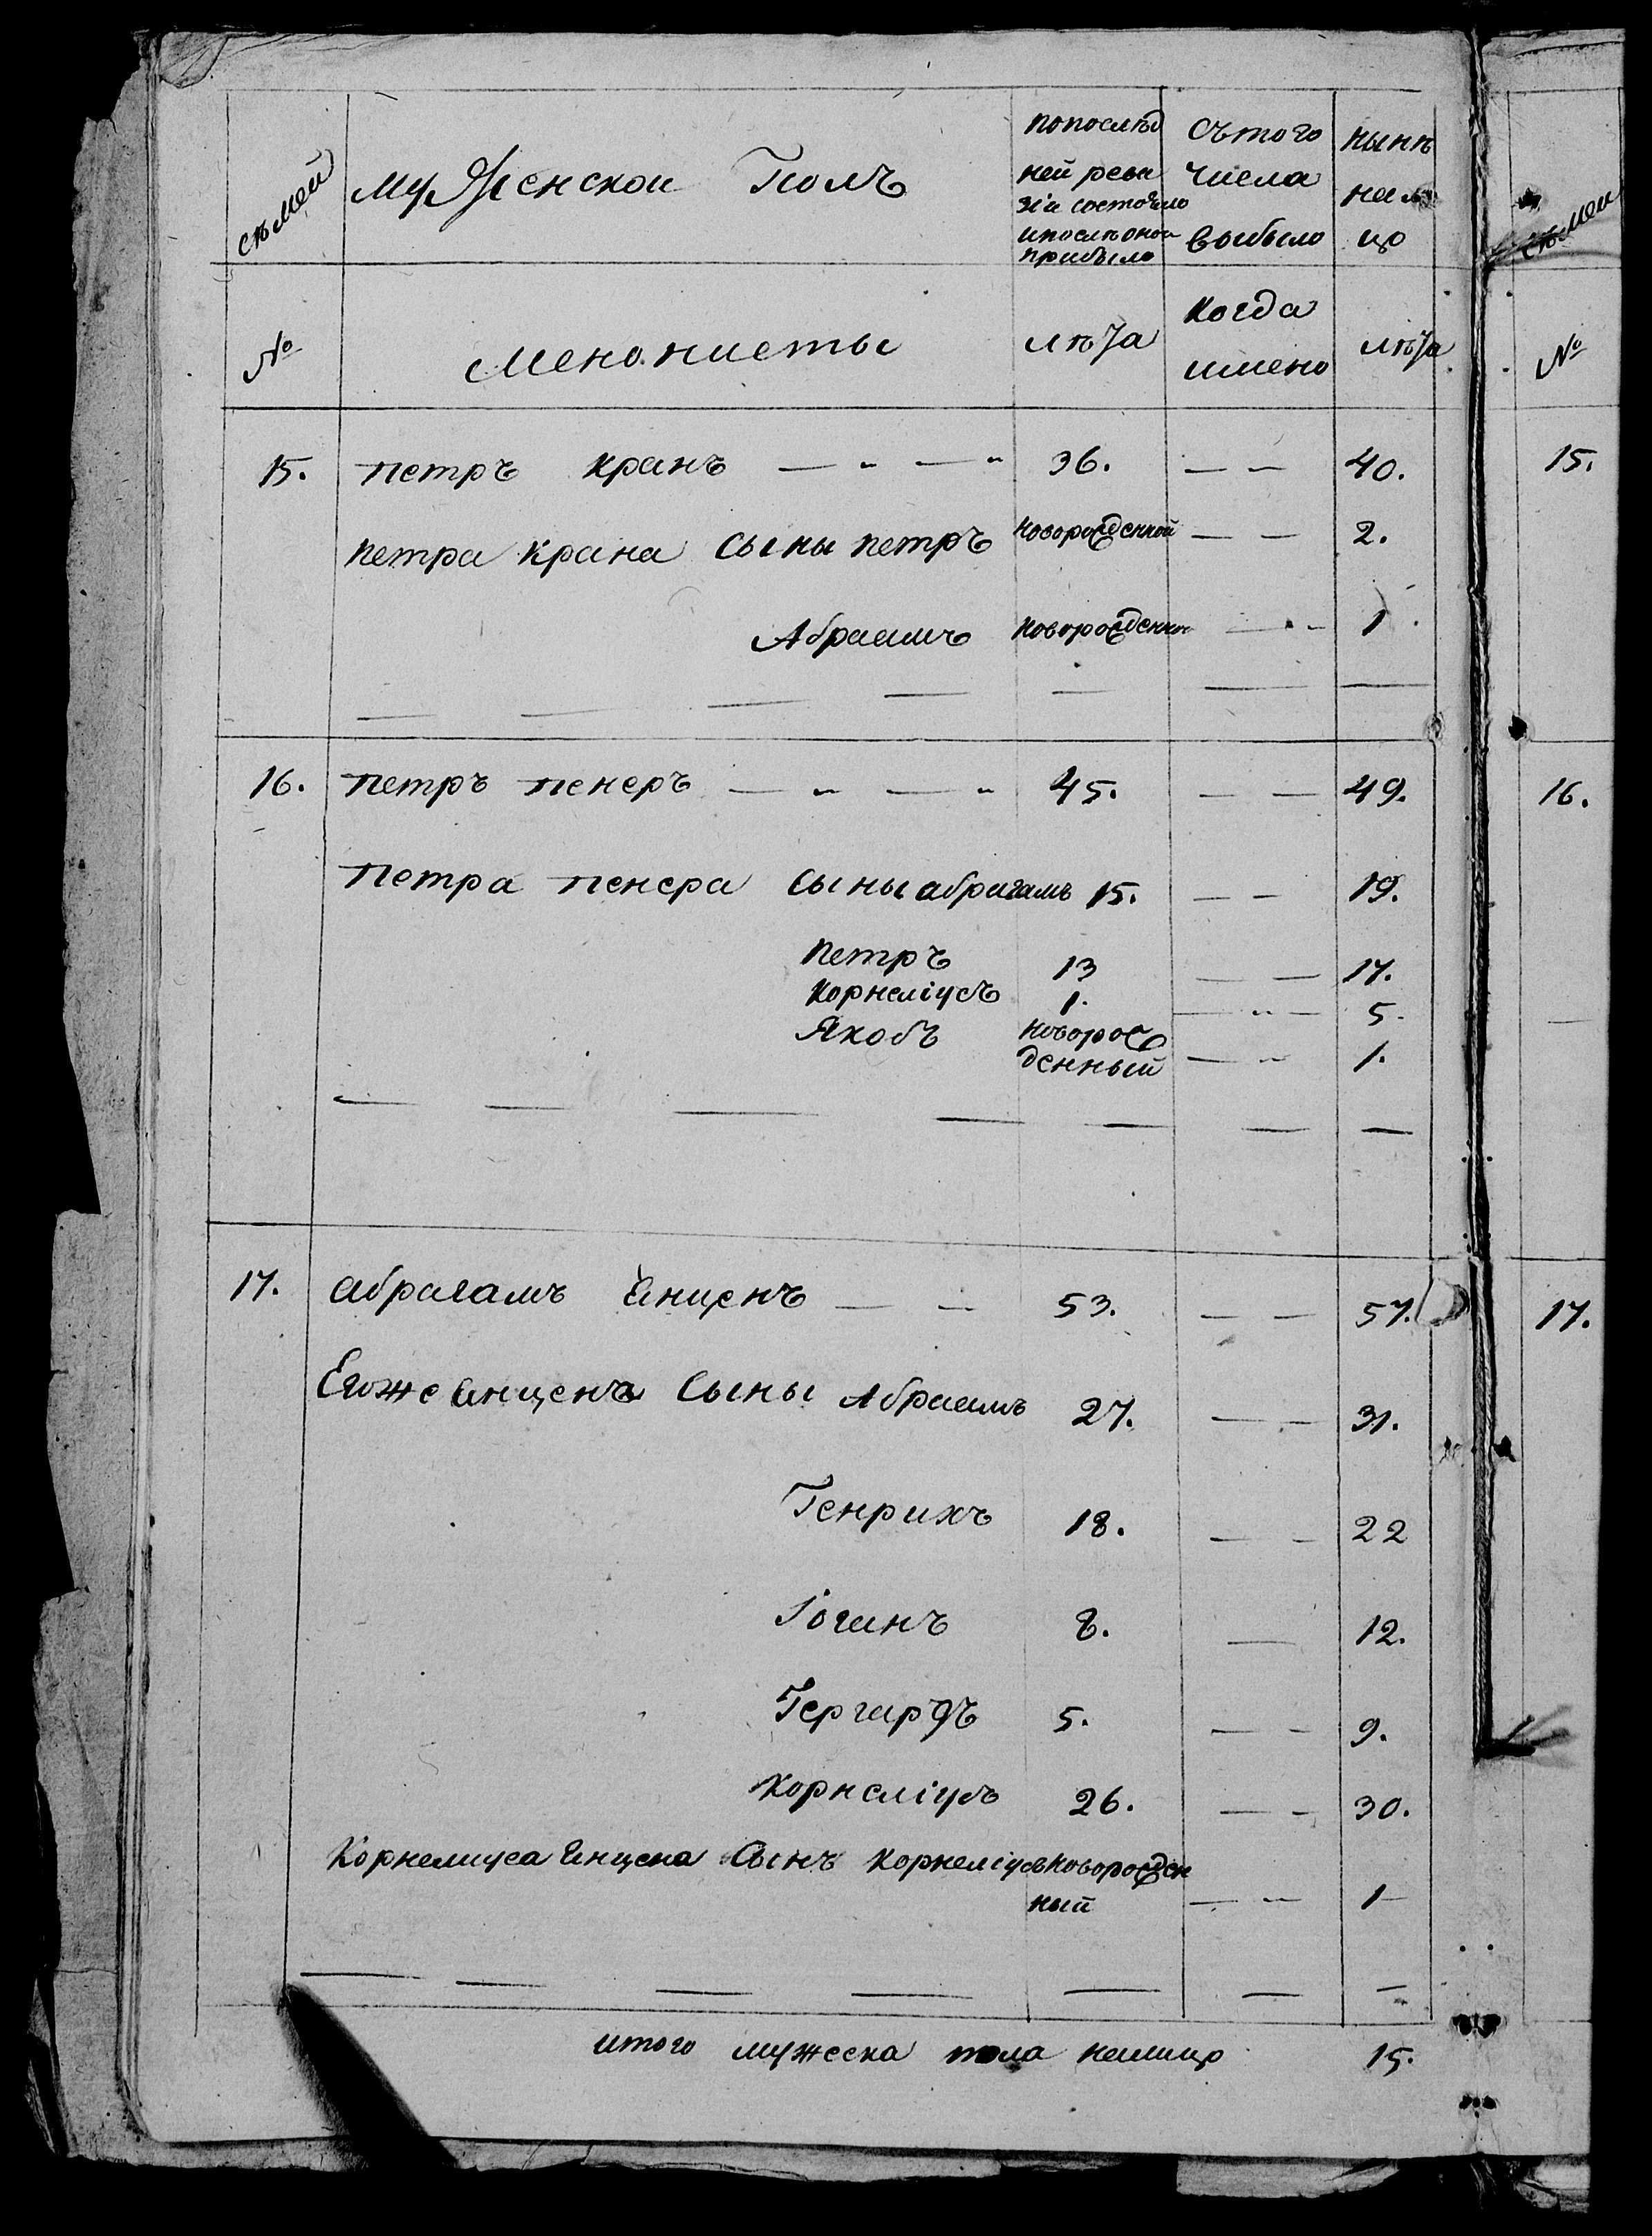 семей
Мужескои Полъ
попослѣд
ней реви
зіи состояло
ипослѣ оной
прибыло
Съ того
числа
выбыло
нынѣ
на ли
цо
№
Менонисты
лѣта
когда
имено
лѣта
15. Петръ Кранъ — „ — „ 36. — — 40.
Петра Крана Сыны Петръ новорожденной — — 2.
Абрагамъ новорожденной — — 1
16. Петръ Пенеръ — „ — „ 45. — — 49.
Петра Пенера Сыны абрагамъ 15. — — 19.
Петръ 13 — — 17.
Корнеліусъ 1. — „ — 5.
Якобъ новорож
денный — „ 1.
17. абрагамъ Енценъ — — 53. — — 57.
Егоже Енценъ Сыны Абрагамъ 27. — — 31.
Генрихъ 18. — — 22
Іоганъ 8. — 12.
Гергардъ 5. — — 9.
Корнеліусъ 26. — — 30.
Корнелиуса Енцена Сынъ Корнеліусъ новорожден
ный — — 1
итого мужеска пола налицо 15.
семей
№
15.
16.
17.